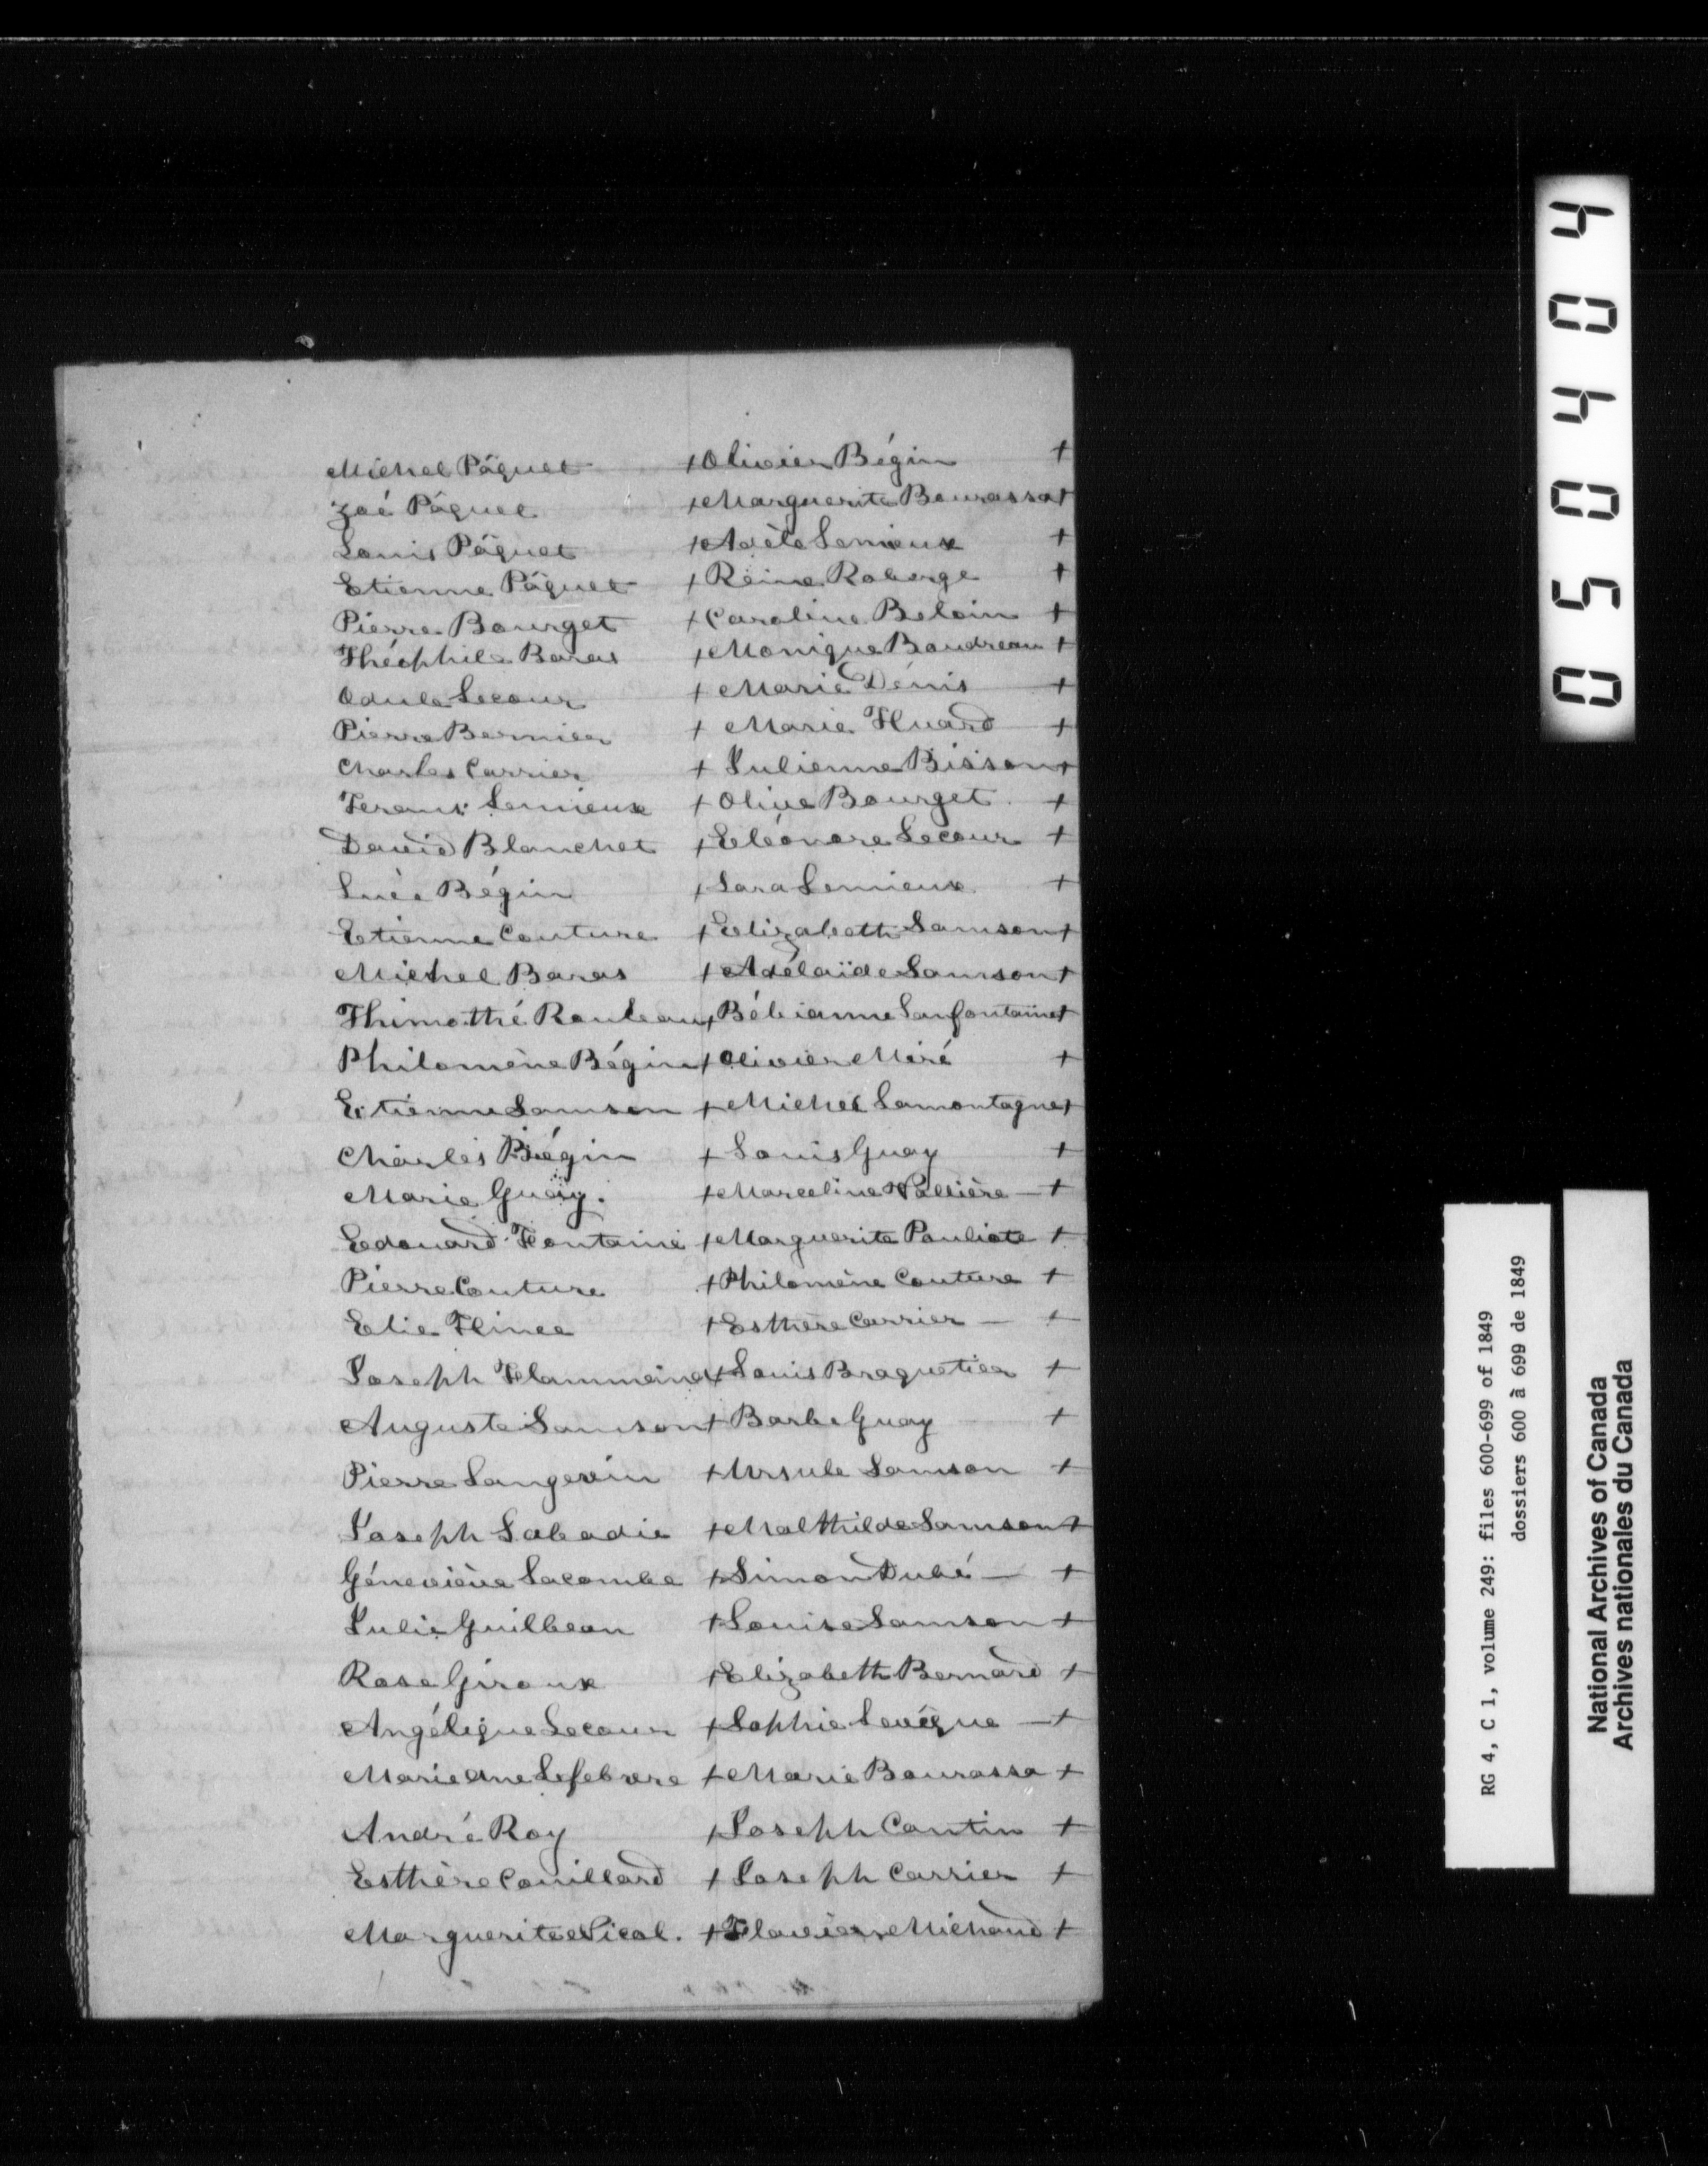 Michel Pâquet + Olivier Bégin +
Zoé Pâquet + Marguerite Bourassa +
Louis Pâquet + Adèle Lemieux +
Etienne Pâquet + Reine Roberge +
Pierre Bourget + Caroline Beloin +
Théophile Baras + Monique Boudreau +
Odule Lecour + Marie Dénis +
Pierre Bernier + Marie Huard +
Charles Carrier + Julienne Bisson +
Lemieux + Olive Bourget +
David Blanchet + Eléonore Lecour +
Luce Bégin + Sara Lemieux +
Etienne Couture + Elizabeth Samson +
Michel Baras + Adélaïde Samson +
Thimothé Rouleau + Bébianne Lanfontaine +
Philomène Bégin + Olivier Miré +
Etienne Samson + Michel Lamontagne +
Charles Bégin + Louis Guay +
Marie Guay. + Marceline Vallière — +
Edouard Fontaine + Marguerite Pouliote +
Pierre Couture + Philomène Couture +
Elie + Esthère Carrier — +
Joseph + Louis Braguetier +
Auguste Samson + Barbe Guay +
Pierre Langevin + Ursule Samson +
Joseph Labadie + Malthilde Samson +
Géneviève Lacombe + Simon Dubé — +
Julie Guilbeau + Louise Samson +
Rose Giroux + Elizabeth Bernard +
Angélique Lecour + Sophie Levêque — +
Marie Ane Lefebvre + Marie Bourassa +
André Roy + Joseph Cantin +
Esthère Couillard + Joseph Carrier +
Marguerite + Flavien Michaud +
050404
RG 4, C 1, volume 249: files 600-699 of 1849
dossiers 600 à 699 de 1849
National Archives of Canada
Archives nationales du Canada